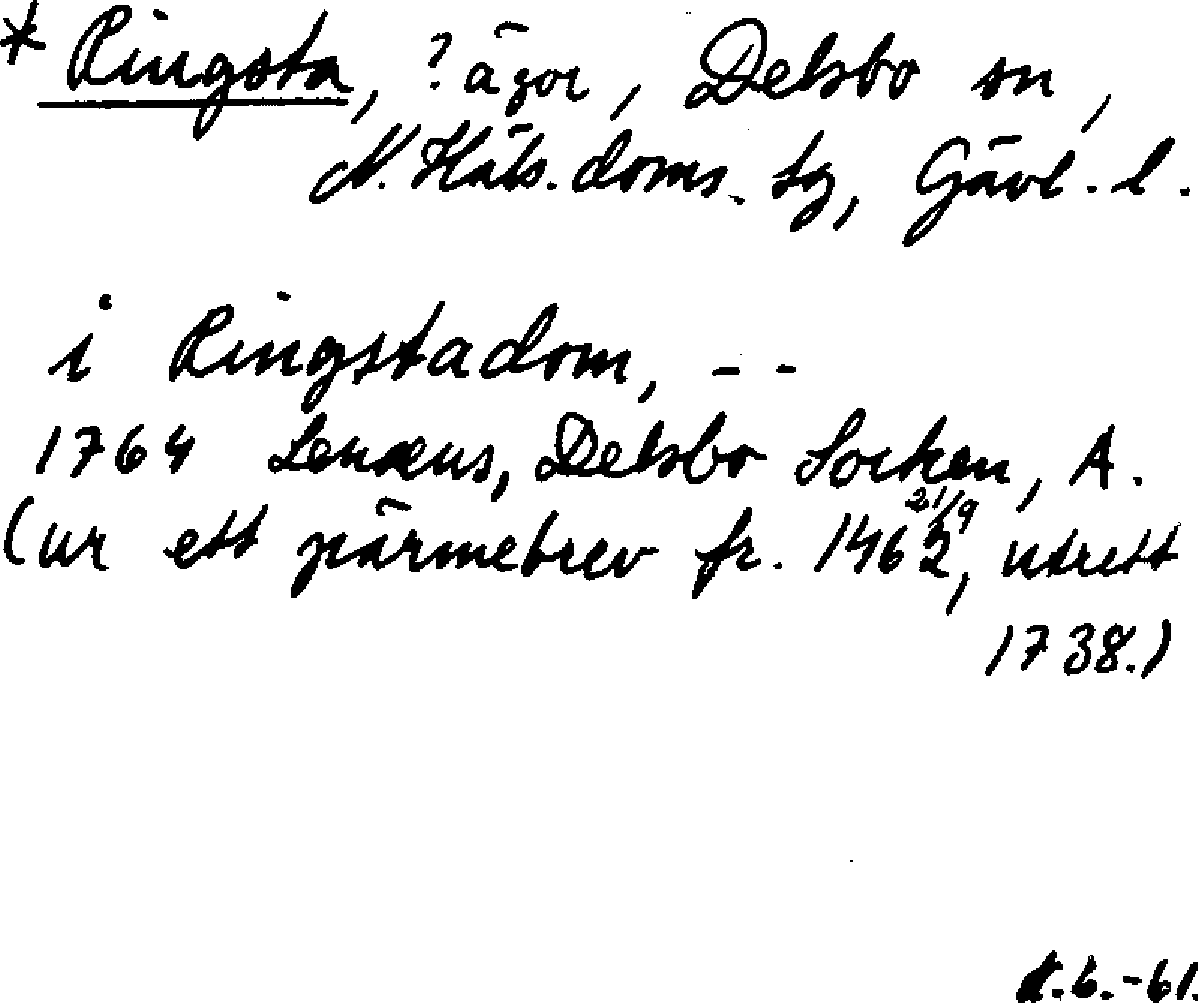 * Ringsta, ? ägor, Delsbo sn,
N. Häls. doms. sg, Gävl. l.
i Ringstadom, - -
1764 Lenæus, Delsbo Socken, A.
(ur ett pärmebrev fr. 1462 21/9, utrett
1738.)
.6.-61.